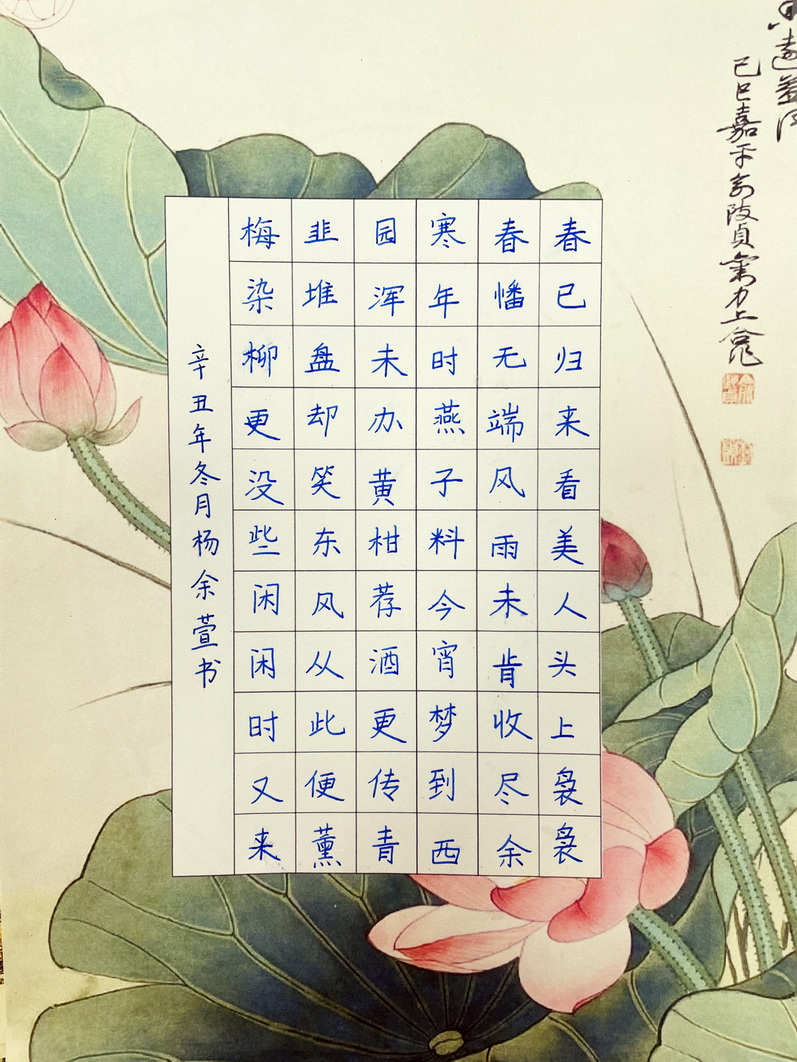 己巳嘉平
春已归来看美人头上袅袅
春幡无端风雨未肯收尽余
寒年时燕子料今宵梦到西
园浑未办黄柑荐酒更传青
韭堆盘却笑东风从此便薰
梅染柳更没些闲闲时又来
辛丑年冬月杨余萱书